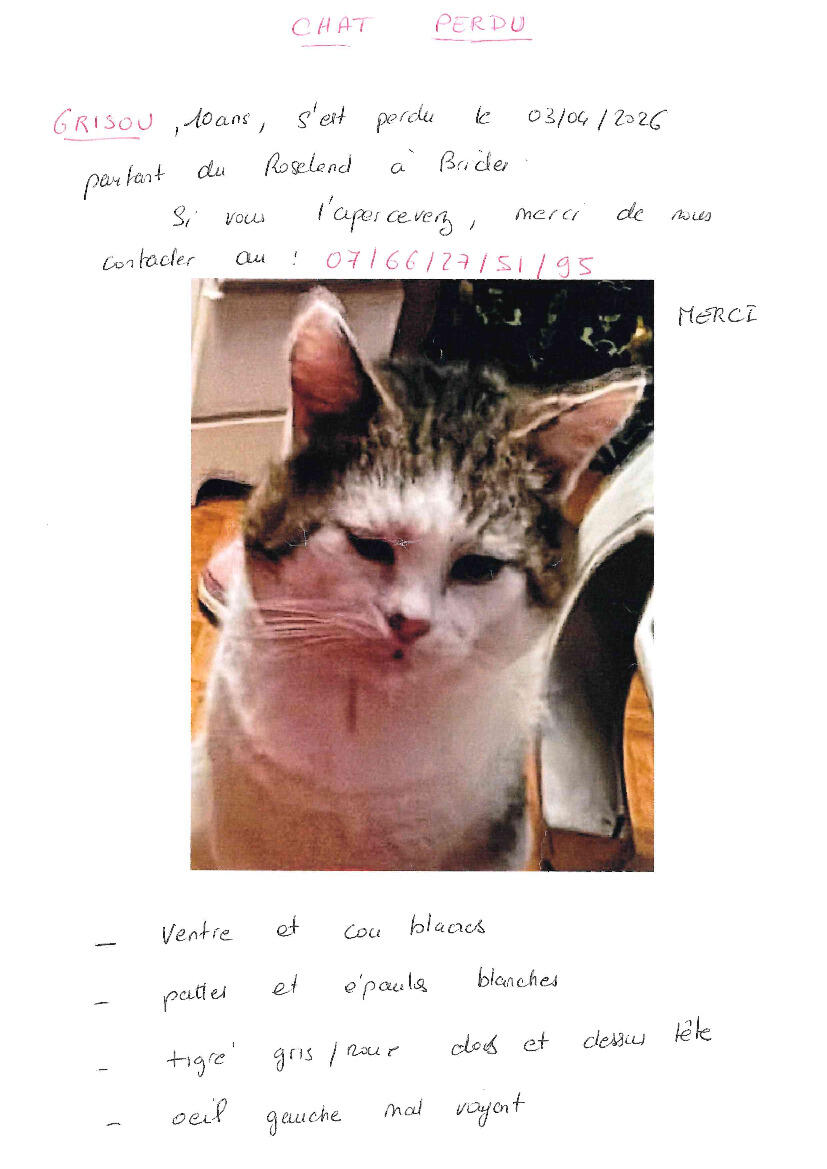 CHAT PERDU
GRISOU, 10ans, s'est perdu le 03/04/2026
partant du Roselend à Brides.
Si vous l'apercevez, merci de nous
contacter au : 07/66/27/51/95
MERCI
- Ventre et cou blancs
- pattes et épaules blanches
- tigré gris/noir dos et dessus tête
- oeil gauche mal voyant